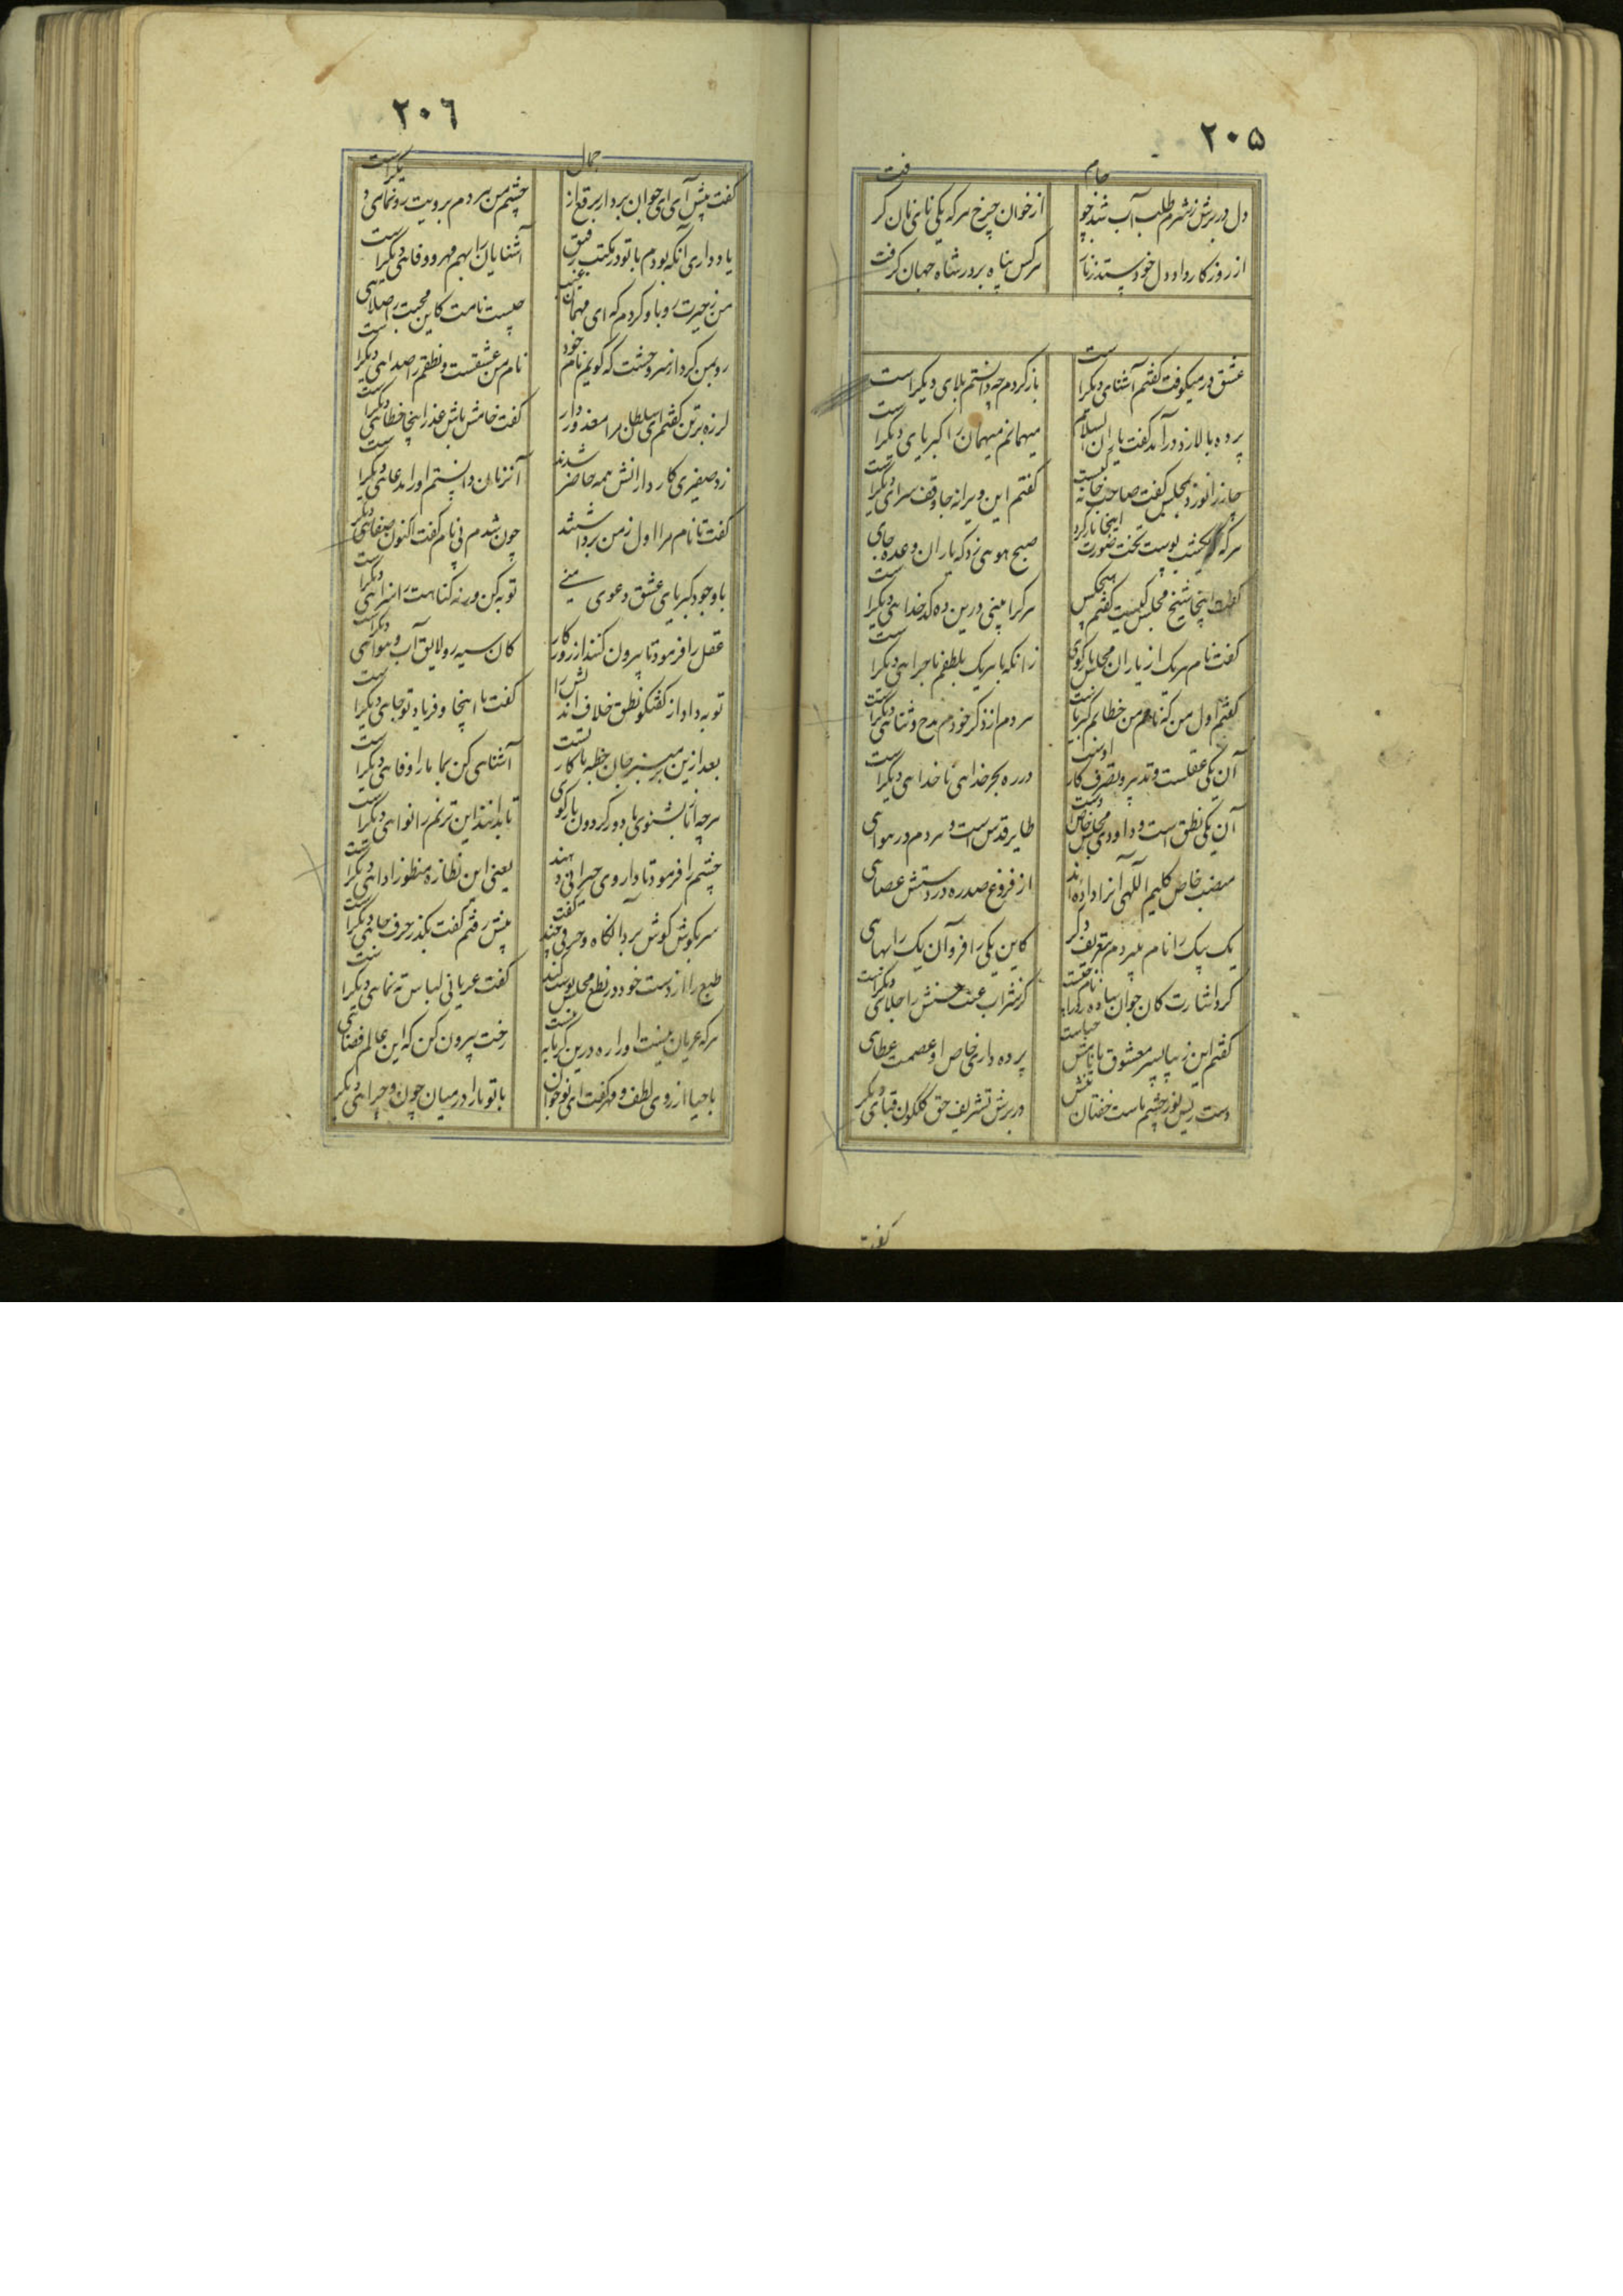 ٢٠٥
دل در برش ز شرم طلب آب شد چو جام
از خوان چرخ هر که یکی نای نان گرفت
از روزگار داد دل خود ستد
هر کس پناه بر در شاه جهان گرفت
عشق در میکوفت گفتم آشنای دیگر است
باز کردم چه دانستم بلای دیگر است
پرده بالا زد درآمد گفت یاران السلام
میهمانم میهمان را کبریای دیگر است
چار زانو زد بمجلس گفت صاحب خانه کیست
گفتم این ویرانه جا وقف سرای دیگر است
هر که
صبح هوهی زد که یاران وعده جای
گفت اینجا شیخ مجلس کیست گفتم هیچکس
هر کرا بینی درین ده کدخداهی دیگر است
گفت نام هریک از یاران مجلس بازگوی
زانکه با هریک بلطفم ماجراهی دیگر است
گفتم اول من که نام من خطایم
هر دم از ذکر خودم مدح و ثناهی دیگر است
آن یکی عقلست و تدبیر و تصرف کار اوست
در ره بحر خداهی ناخداهی دیگر است
آن یکی نطق است و داودی مجلس خاص
طایر قدس است و هر دم در هواهی
منصب خاص کلیم اللهی آنرا داده‌اند
از فروغ صدره در دستش عصاهی
یک بیک را نام بردم بتعریف دگر
کاین یکی را فر و آن یک را بهاهی
کرد اشارت کان جوان ساده رو را نام چیست
کز شراب حسنش را جلای دیگر است
گفتم این زیبا پسر معشوق با نامش حیاست
پرده داری خاص او عصمت عطاهی
دست ریس نور چشم ماست خفتان تنش
در برش تشریف حق گلگون قبای دیگر
گفت
٢٠٦
گفت پیش آی ای جوان بردار برقع از جمال
چشم من هر دم برویت رونمای دیگر است
یاد داری آنکه بودم با تو در مکتب رفیق
آشنایان را بهم مهر و وفاهی دیگر است
من ز حیرت رو باو کردم که ای مهمان غیب
چیست نامت کاین محبت را صلاهی
رو بمن کرد از سر وحشت که گویم نام خود
نام من عشقست و نطقم را صداهی دیگر است
لرزه بر تن گفتم ای سلطان مرا معذور دار
گفت خامش باش عذر اینجا خطاهی دیگر است
زد صفیری کاردارانش همه حاضر شدند
آنزمان دانستم او را مدعاهی دیگر است
گفت تا نام مرا اول ز من برداشتند
چون شدم بی نام گفت اکنون صفاهی دیگر
با وجود کبریای عشق دعوی منی
توبه کن ورنه گناهت را سزاهی دیگر است
عقل را فرمود تا بیرون کنند از روزگار
کان سیه رو لایق آب و هواهی دیگر است
توبه داد از گفتگو نطق خلاف اندیش را
گفت با اینجا و فریاد تو جای دیگر است
بعد ازین بر منبر جان خطبه ما کار تست
آشناهی کن بما ما را وفاهی دیگر است
هر چه از ما بشنوی با دور گردون بازگوی
تا بدانند این ترنم را نواهی دیگر است
چشم را فرمود تا داروی حیرانی دهند
یعنی این نظاره منظور اداهی دیگر است
سر بگوش گوش برد آنگاه و حرفی چند گفت
پیش رفتم گفت بگذر حرف جاهی دیگر است
طبع را از دست خود در نطع مجلس پوست کند
گفت عریانی لباس ته نماهی دیگر است
هر که عریان نیست او را ره درین گرمابه نیست
رخت بیرون کن که این عالم فضاهی
با حیا از روی لطف و مهر گفت ای نوجوان
با تو ما را در میان چون و چراهی دیگر